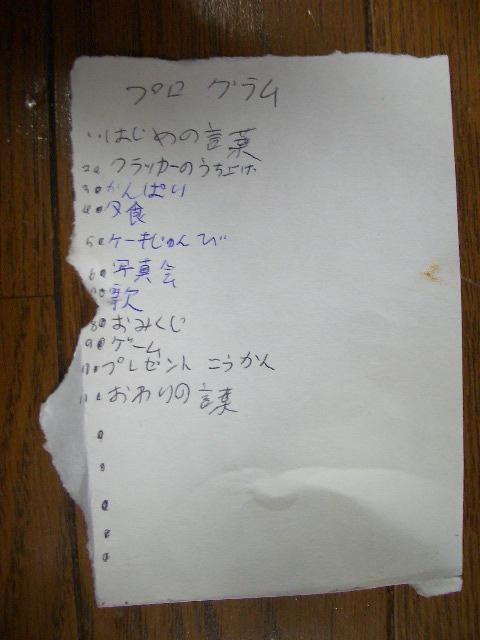 プログラム
1. はじめの言葉
2. クラッカーのうち上げ
3. かんぱい
4. 夕食
5. ケーキじゅんび
6. 写真会
7. 歌
8. おみくじ
9. ゲーム
10. プレゼントこうかん
11. おわりの言葉